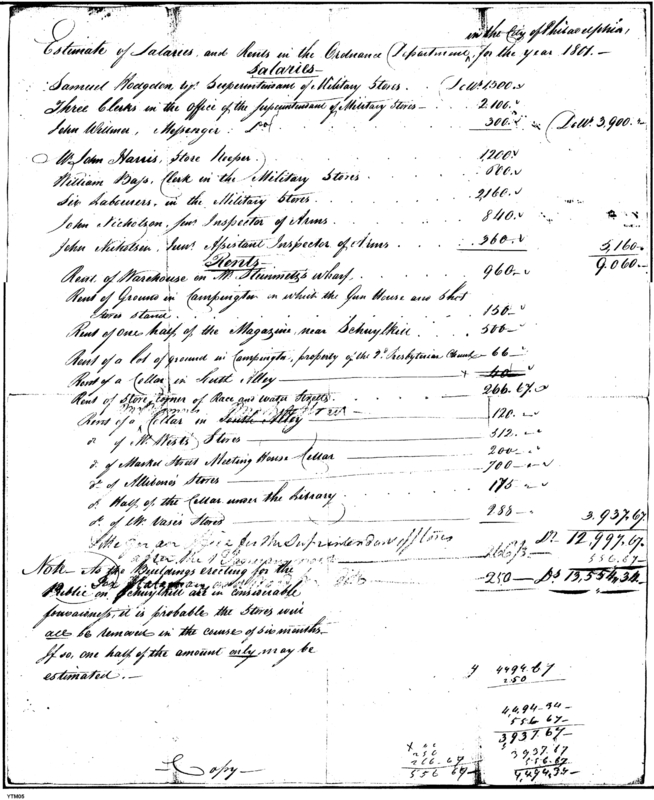 in the City of Philadelphia,
Estimate of Salaries, and Rents in the Ordnance Department, for the year 1801.—
Salaries—
Samuel Hodgdon Esqr. Superintendant of Military Stores . Dolls. 1500.
Three Clerks in the Office of the Superintendant of Military Stores — 2.100.
John Willmer, Messenger . Do . . . 300. Dolls. 3,900.
Mr. John Harris, Store Keeper . . . 1200
William Bass, Clerk in the Military Stores . . . 500.
Six Labourers, in the Military Stores . . . 2160.
John Nicholson, Inspector of Arms . . . 840.
John Nicholson, Junr. Assistant Inspector of Arms . . . 360. 5,160
9,060.—
Rents—
Rent of Warehouse on Mr. Stinmetz's wharf . . . 960.
Rent of Ground in Campington on which the Gun House and Shot
stand . . . 150.
Rent of one half of the Magazine, near Schuylkill . . . 500—
Rent of a lot of ground in Campington, property of the 2d. Presbyterian Church — 66—
Rent of a Cellar in South Alley —
Rent of Store, corner of Race and water Streets — 266.67.
Rent of a Cellar in — 120.
do of Mr. West's Stores — 312.
do of Market Street Meeting House Cellar — 200
do of Allibone's Stores — 700—
do Half of the Cellar under the Library — 175
do of Stores — 288— 3.937.67
for the Superintendant of Stores Ds 12,997.67.
556.67—
250— Ds 13,554.34—
Note— As the Buildings erecting for the
Public on Schuylkill are in considerable
forwardness, it is probable the Stores will
all be removed in the course of six months—
If so, one half of the amount only may be
estimated.—
4494.67
250
4,494-34—
556 67—
3937.67—
3937.67
556.67—
4,494.34—
250
266.67
556 67—
Copy—
YTM05